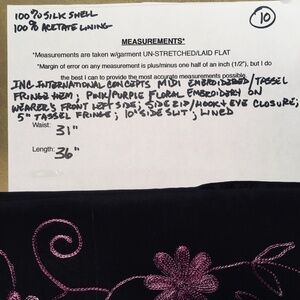 100% SILK SHELL
100% ACETATE LINING
10
MEASUREMENTS*
*Measurements are taken w/garment UN-STRETCHED/LAID FLAT
*Margin of error on any measurement is plus/minus one half of an inch (1/2"), but I do
the best I can to provide the most accurate measurements possible.
INC INTERNATIONAL CONCEPTS MIDI EMBROIDERED/TASSEL
FRINGE HEM; PINK/PURPLE FLORAL EMBROIDERY ON
WEARER'S FRONT LEFT SIDE; SIDE ZIP/HOOK + EYE CLOSURE;
5" TASSEL FRINGE; 10" SIDE SLIT; LINED
Waist: 31"
Length: 36"